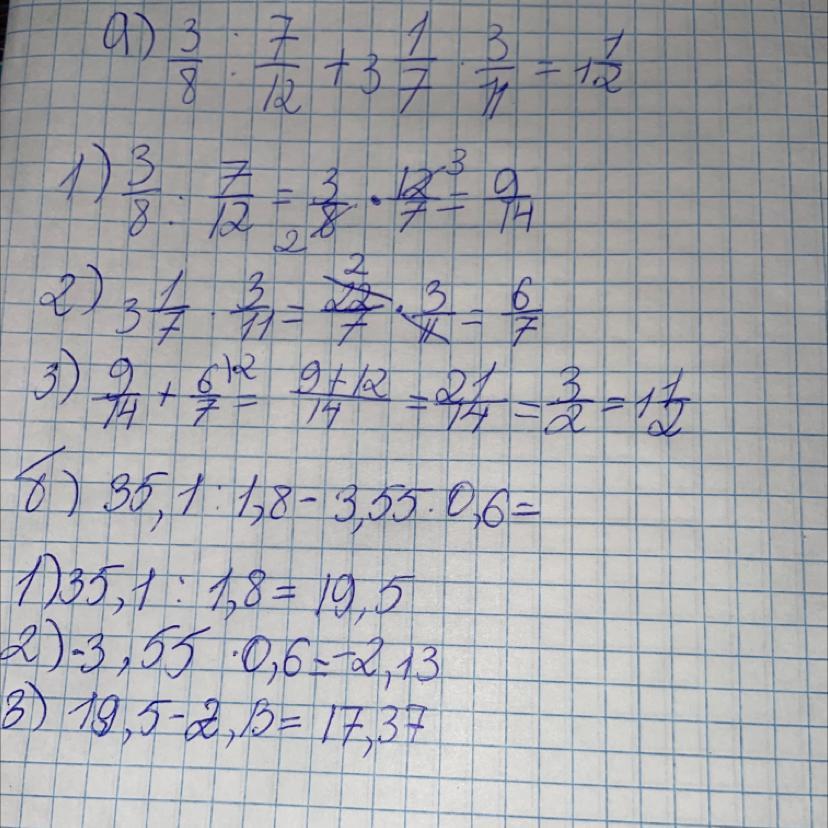 а) 3/8 : 7/12 + 3 1/7 · 3/11 = 1 1/2
1) 3/8 : 7/12 = 3/8 2 · 12/7 3 = 9/14
2) 3 1/7 · 3/11 = 22/7 2 · 3/11 = 6/7
3) 9/14 + 6/7 )2 = 9+12/14 = 21/14 = 3/2 = 1 1/2
б) 35,1 : 1,8 - 3,55 · 0,6 =
1) 35,1 : 1,8 = 19,5
2) -3,55 · 0,6 = -2,13
3) 19,5 - 2,13 = 17,37